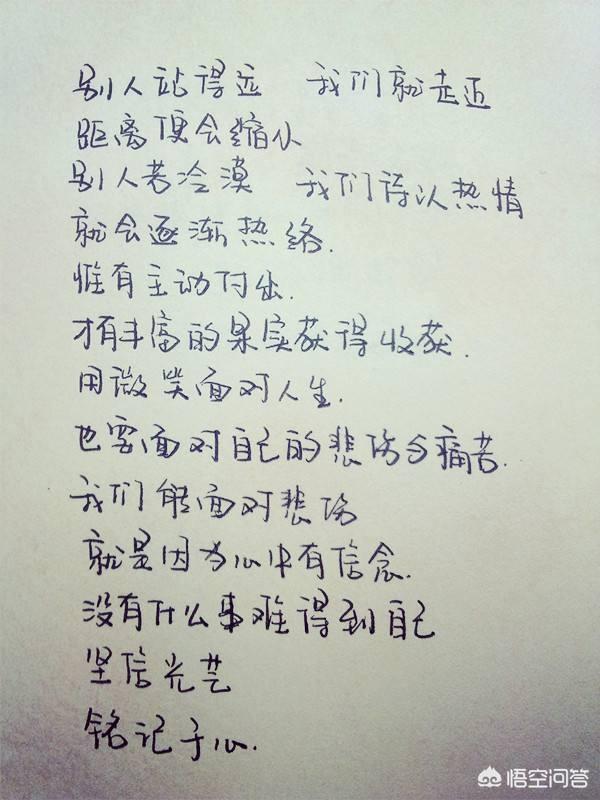 别人站得远 我们就走近
距离便会缩小
别人若冷漠 我们待以热情
就会逐渐热络.
惟有主动付出.
才有丰富的果实获得收获.
用微笑面对人生.
也要面对自己的悲伤与痛苦.
我们能面对悲伤
就是因为心中有信念.
没有什么事难得到自己
坚信光芒
铭记于心.
悟空问答